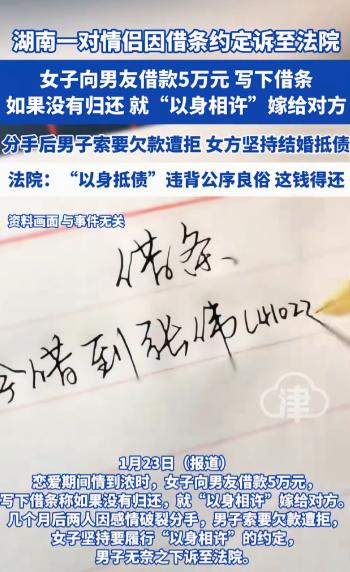 湖南一对情侣因借条约定诉至法院
女子向男友借款5万元 写下借条
如果没有归还 就“以身相许”嫁给对方
分手后男子索要欠款遭拒 女方坚持结婚抵债
法院：“以身抵债”违背公序良俗 这钱得还
资料画面 与事件无关
借条、
今借到张伟(41022
津
1月23日（报道）
恋爱期间情到浓时，女子向男友借款5万元，
写下借条称如果没有归还，就“以身相许”嫁给对方。
几个月后两人因感情破裂分手，男子索要欠款遭拒，
女子坚持要履行“以身相许”的约定，
男子无奈之下诉至法院。